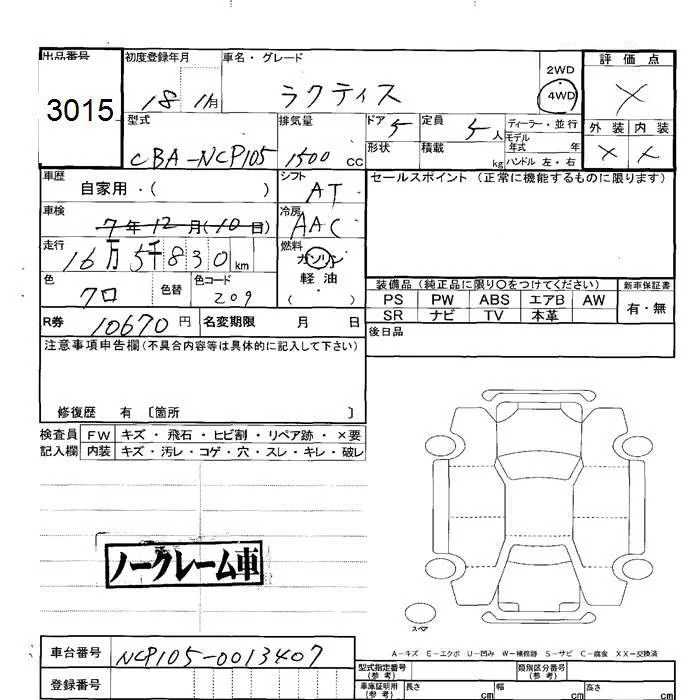 出品番号
3015
初度登録年月
18 1 月
車名・グレード
ラクティス
2WD
4WD
評価点
X
外装 内装
X X
型式
CBA-NCP105
排気量
1500 CC
ドア 5
形状
定員 5 人
積載 kg
ディーラー・並行
モデル
年式 年
ハンドル 左・右
車歴
自家用・( )
シフト
AT
セールスポイント (正常に機能するものに限ります)
車検
7年12月(10日)
冷房
AAC
走行
16万5千830 km
燃料
ガソリン
軽油
( ・ )
色
クロ
色替
色コード
209
装備品(純正品に限り○をつけてください)
PS PW ABS エアB AW
SR ナビ TV 本革
新車保証書
有・無
R券 10670 円
名変期限 月 日
後日品
注意事項申告欄(不具合内容等は具体的に記入して下さい)
修復歴 有 〔箇所 〕
検査員
記入欄
FW キズ・飛石・ヒビ割・リペア跡・×要
内装 キズ・汚レ・コゲ・穴・スレ・キレ・破レ
ノークレーム車
スペア
A-キズ E-エクボ U-凹み W-補修跡 S-サビ C-腐食 XX-交換済
車台番号 NCP105-0013407
登録番号
型式指定番号
(参考)
類別区分番号
(参考)
車庫証明用
(参考)
長さ cm
幅 cm
高さ cm